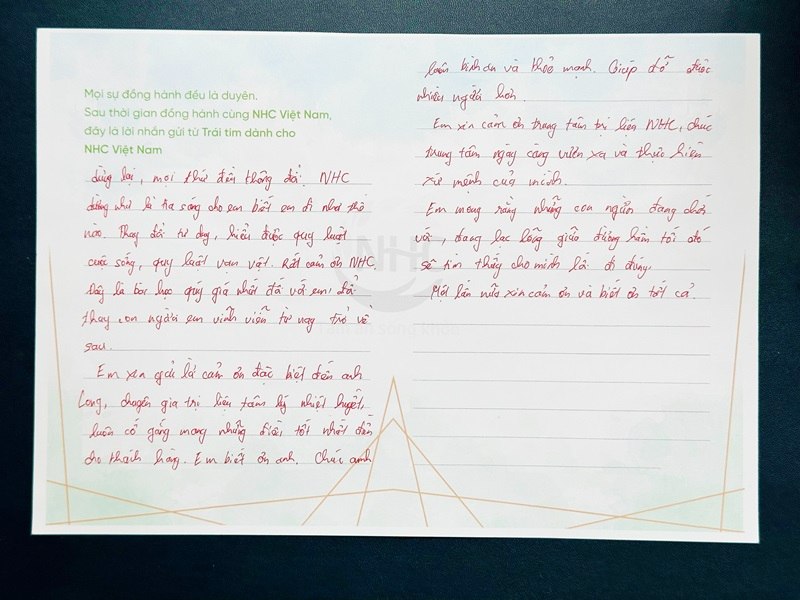 Mọi sự đồng hành đều là duyên.
Sau thời gian đồng hành cùng NHC Việt Nam,
đây là lời nhắn gửi từ Trái tim dành cho
NHC Việt Nam
dừng lại, mọi thứ đến thông đổi. NHC
dường như là tia sáng cho em biết em đi như thế
nào. Thay đổi tư duy, hiểu được quy luật
cuộc sống, quy luật vạn vật. Rất cảm ơn NHC.
Đây là bài học quý giá nhất đối với em, đã
thay con người em vĩnh viễn từ nay trở về
sau.
Em xin gửi lời cảm ơn đặc biệt đến anh
Long, chuyên gia trị liệu tâm lý nhiệt huyết,
luôn cố gắng mang những điều tốt nhất đến
cho khách hàng. Em biết ơn anh. Chúc anh
luôn bình an và khoẻ mạnh. Giúp đỡ được
nhiều người hơn.
Em xin cảm ơn trung tâm trị liệu NHC, chúc
trung tâm ngày càng vươn xa và thực hiện
sứ mệnh của mình.
Em mong rằng những con người đang chơi
vơi, đang lạc lõng giữa đường hầm tối đó
sẽ tìm thấy cho mình lối đi đúng.
Một lần nữa xin cảm ơn và biết ơn tất cả.
NHC